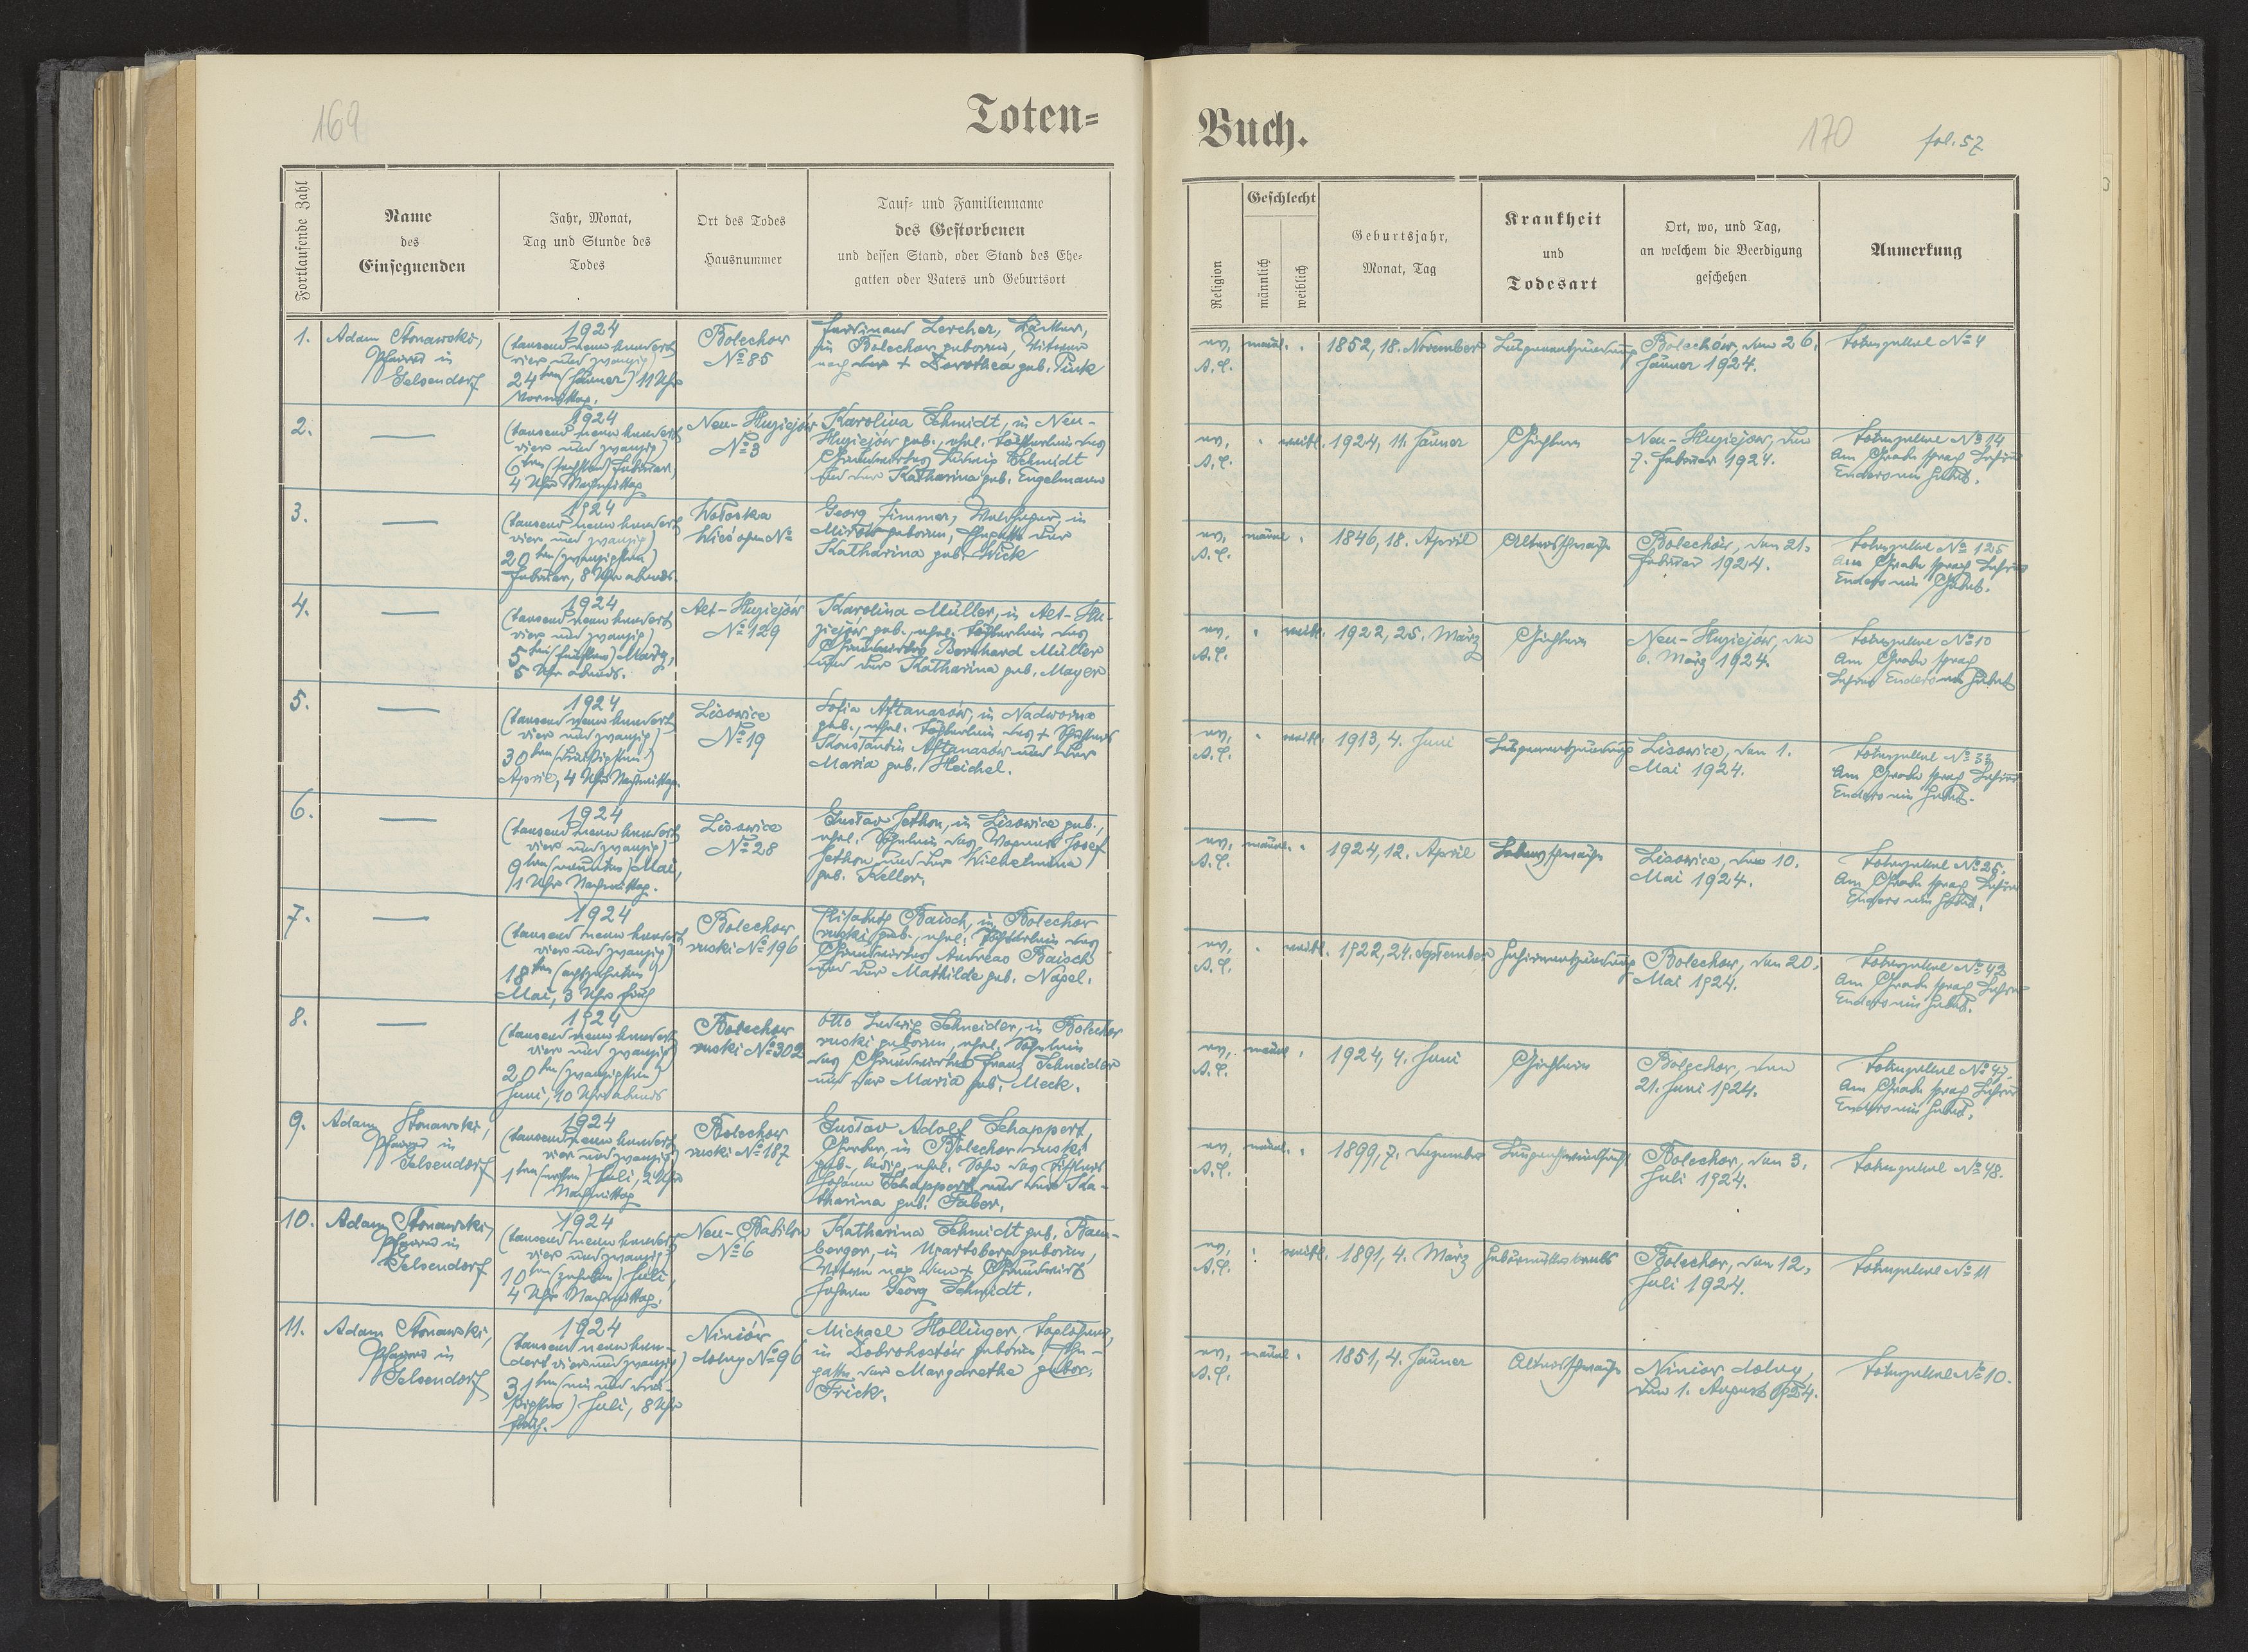 169
Toten=
Fortlaufende Zahl
Name
des
Einsegnenden
Jahr, Monat,
Tag und Stunde des
Todes
Ort des Todes
Hausnummer
Tauf= und Familienname
des Gestorbenen
und dessen Stand, oder Stand des Ehe=
gatten oder Vaters und Geburtsort
1.
Adam Stonawski,
Pfarrer in
Gelsendorf
1924
(tausend neun hundert
vier und zwanzig)
24ten Jänner, 11 Uhr
Vormittag.
Bolechow
No 85
Ferdinand Lercher, Bäcker,
in Bolechow geboren, Witwer
nach der + Dorothea geb. Pink
2.
—
1924
(tausend neun hundert
vier und zwanzig)
6ten (sechsten) Februar,
4 Uhr Nachmittag
Neu-Hugiejów
No 3
Karolina Schmidt, in Neu-
Hugiejów geb., ehel. Töchterlein des
Grundwirtes Ludwig Schmidt
und der Katharina geb. Engelmann
3.
—
1924
(tausend neun hundert
vier und zwanzig)
20ten (zwanzigsten)
Februar, 8 Uhr abends.
Wołoska
Wieś ohne No
Georg Zimmer, Waldheger, in
geboren, Ehegatte der
Katharina geb. Wick
4.
—
1924
(tausend neun hundert
vier und zwanzig)
5ten (fünften) März,
5 Uhr abends.
Alt-Hugiejów
No 129
Karolina Müller, in Alt-Hu-
giejów geb., ehel. Töchterlein des
Grundwirtes Bernhard Müller
und der Katharina geb. Mayer
5.
—
1924
(tausend neun hundert
vier und zwanzig)
30ten (dreißigsten)
April, 4 Uhr Nachmittag.
Lisowice
No 19
Sofia Aftanasów, in Nadworna
geb., ehel. Töchterlein des +
Konstantin Aftanasów und der
Maria geb. Heichel.
6.
—
1924
(tausend neun hundert
vier und zwanzig)
9ten (neunten) Mai,
1 Uhr Nachmittag.
Lisowice
No 28
Gustav Jethon, in Lisowice geb.,
ehel. Söhnlein des Wagners Josef
Jethon und der Wilhelmina
geb. Keller.
7.
—
1924
(tausend neun hundert
vier und zwanzig)
18ten (achtzehnten)
Mai, 3 Uhr früh
Bolechow
ruski No 196
Elisabeth Baisch, in Bolechow
ruski geb., ehel. Töchterlein des
Grundwirtes Andreas Baisch
und der Mathilde geb. Nagel.
8.
—
1924
(tausend neun hundert
vier und zwanzig)
20ten (zwanzigsten)
Juni, 10 Uhr abends
Bolechow
ruski No 302
Otto Ludwig Schneider, in Bolechow
ruski geboren, ehel. Söhnlein
des Grundwirtes Franz Schneider
und der Maria geb. Meck.
9.
Adam Stonawski,
Pfarrer in
Gelsendorf
1924
(tausend neun hundert
vier und zwanzig)
1ten (ersten) Juli, 2 Uhr
Nachmittag
Bolechow
ruski No 187
Gustav Adolf Schappert,
Gerber, in Bolechow ruski
geb., ledig, ehel. Sohn des Tischlers
Johann Schappert und der Ka-
tharina geb. Faber.
10.
Adam Stonawski,
Pfarrer in
Gelsendorf
1924
(tausend neun hundert
vier und zwanzig)
10ten (zehnten) Juli,
4 Uhr Nachmittag.
Neu-Babilon
No 6
Katharina Schmidt geb. Bam-
berger, in Ugartsberg geboren,
Witwe nach dem + Grundwirt
Johann Georg Schmidt.
11.
Adam Stonawski,
Pfarrer in
Gelsendorf
1924
(tausend neun hun-
dert vier und zwanzig)
31ten (ein und drei-
ßigsten) Juli, 8 Uhr
früh.
Niniów
dolny No 96
Michael Hollinger, Taglöhner,
in Dobrohostów geboren, Ehe-
gatte der Margarethe gebor.
Frick.
Buch.
170
fol. 57
Religion
Geschlecht
männlich
weiblich
Geburtsjahr,
Monat, Tag
Krankheit
und
Todesart
Ort, wo, und Tag,
an welchem die Beerdigung
geschehen
Anmerkung
ev.
A.C.
männl.
1852, 18. November
Lungenentzündung
Bolechów, den 26.
Jänner 1924.
Totenzettel No 4
ev.
A.C.
weibl.
1924, 11. Jänner
Gichtern
Neu-Hugiejów, den
7. Februar 1924.
Totenzettel No 14
Am Grabe sprach Lehrer
Enders ein Gebet.
ev.
A.C.
männl.
1846, 18. April
Altersschwäche
Bolechów, den 21.
Februar 1924.
Totenzettel No 125
Am Grabe sprach Lehrer
Enders ein Gebet.
ev.
A.C.
weibl.
1922, 25. März
Gichtern
Neu-Hugiejów, den
6. März 1924.
Totenzettel No 10
Am Grabe sprach
Lehrer Enders ein Gebet
ev.
A.C.
weibl.
1913, 4. Juni
Lungenentzündung
Lisowice, den 1.
Mai 1924.
Totenzettel No 33
Am Grabe sprach Lehrer
Enders ein Gebet.
ev.
A.C.
männl.
1924, 12. April
Lebensschwäche
Lisowice, den 10.
Mai 1924.
Totenzettel No 26.
Am Grabe sprach Lehrer
Enders ein Gebet.
ev.
A.C.
weibl.
1922, 24. September
Gehirnentzündung
Bolechow, den 20.
Mai 1924.
Totenzettel No 43
Am Grabe sprach Lehrer
Enders ein Gebet.
ev.
A.C.
männl.
1924, 4. Juni
Gichtern
Bolechow, den
21. Juni 1924.
Totenzettel No 47.
Am Grabe sprach Lehrer
Enders ein Gebet.
ev.
A.C.
männl.
1899, 7. Dezember
Lungenschwindsucht
Bolechow, den 3.
Juli 1924.
Totenzettel No 48.
ev.
A.C.
weibl.
1891, 4. März
Gebärmutterkrebs
Bolechow, den 12.
Juli 1924.
Totenzettel No 11
ev.
A.C.
männl.
1851, 4. Jänner
Altersschwäche
Niniów dolny,
den 1. August 1924.
Totenzettel No 10.